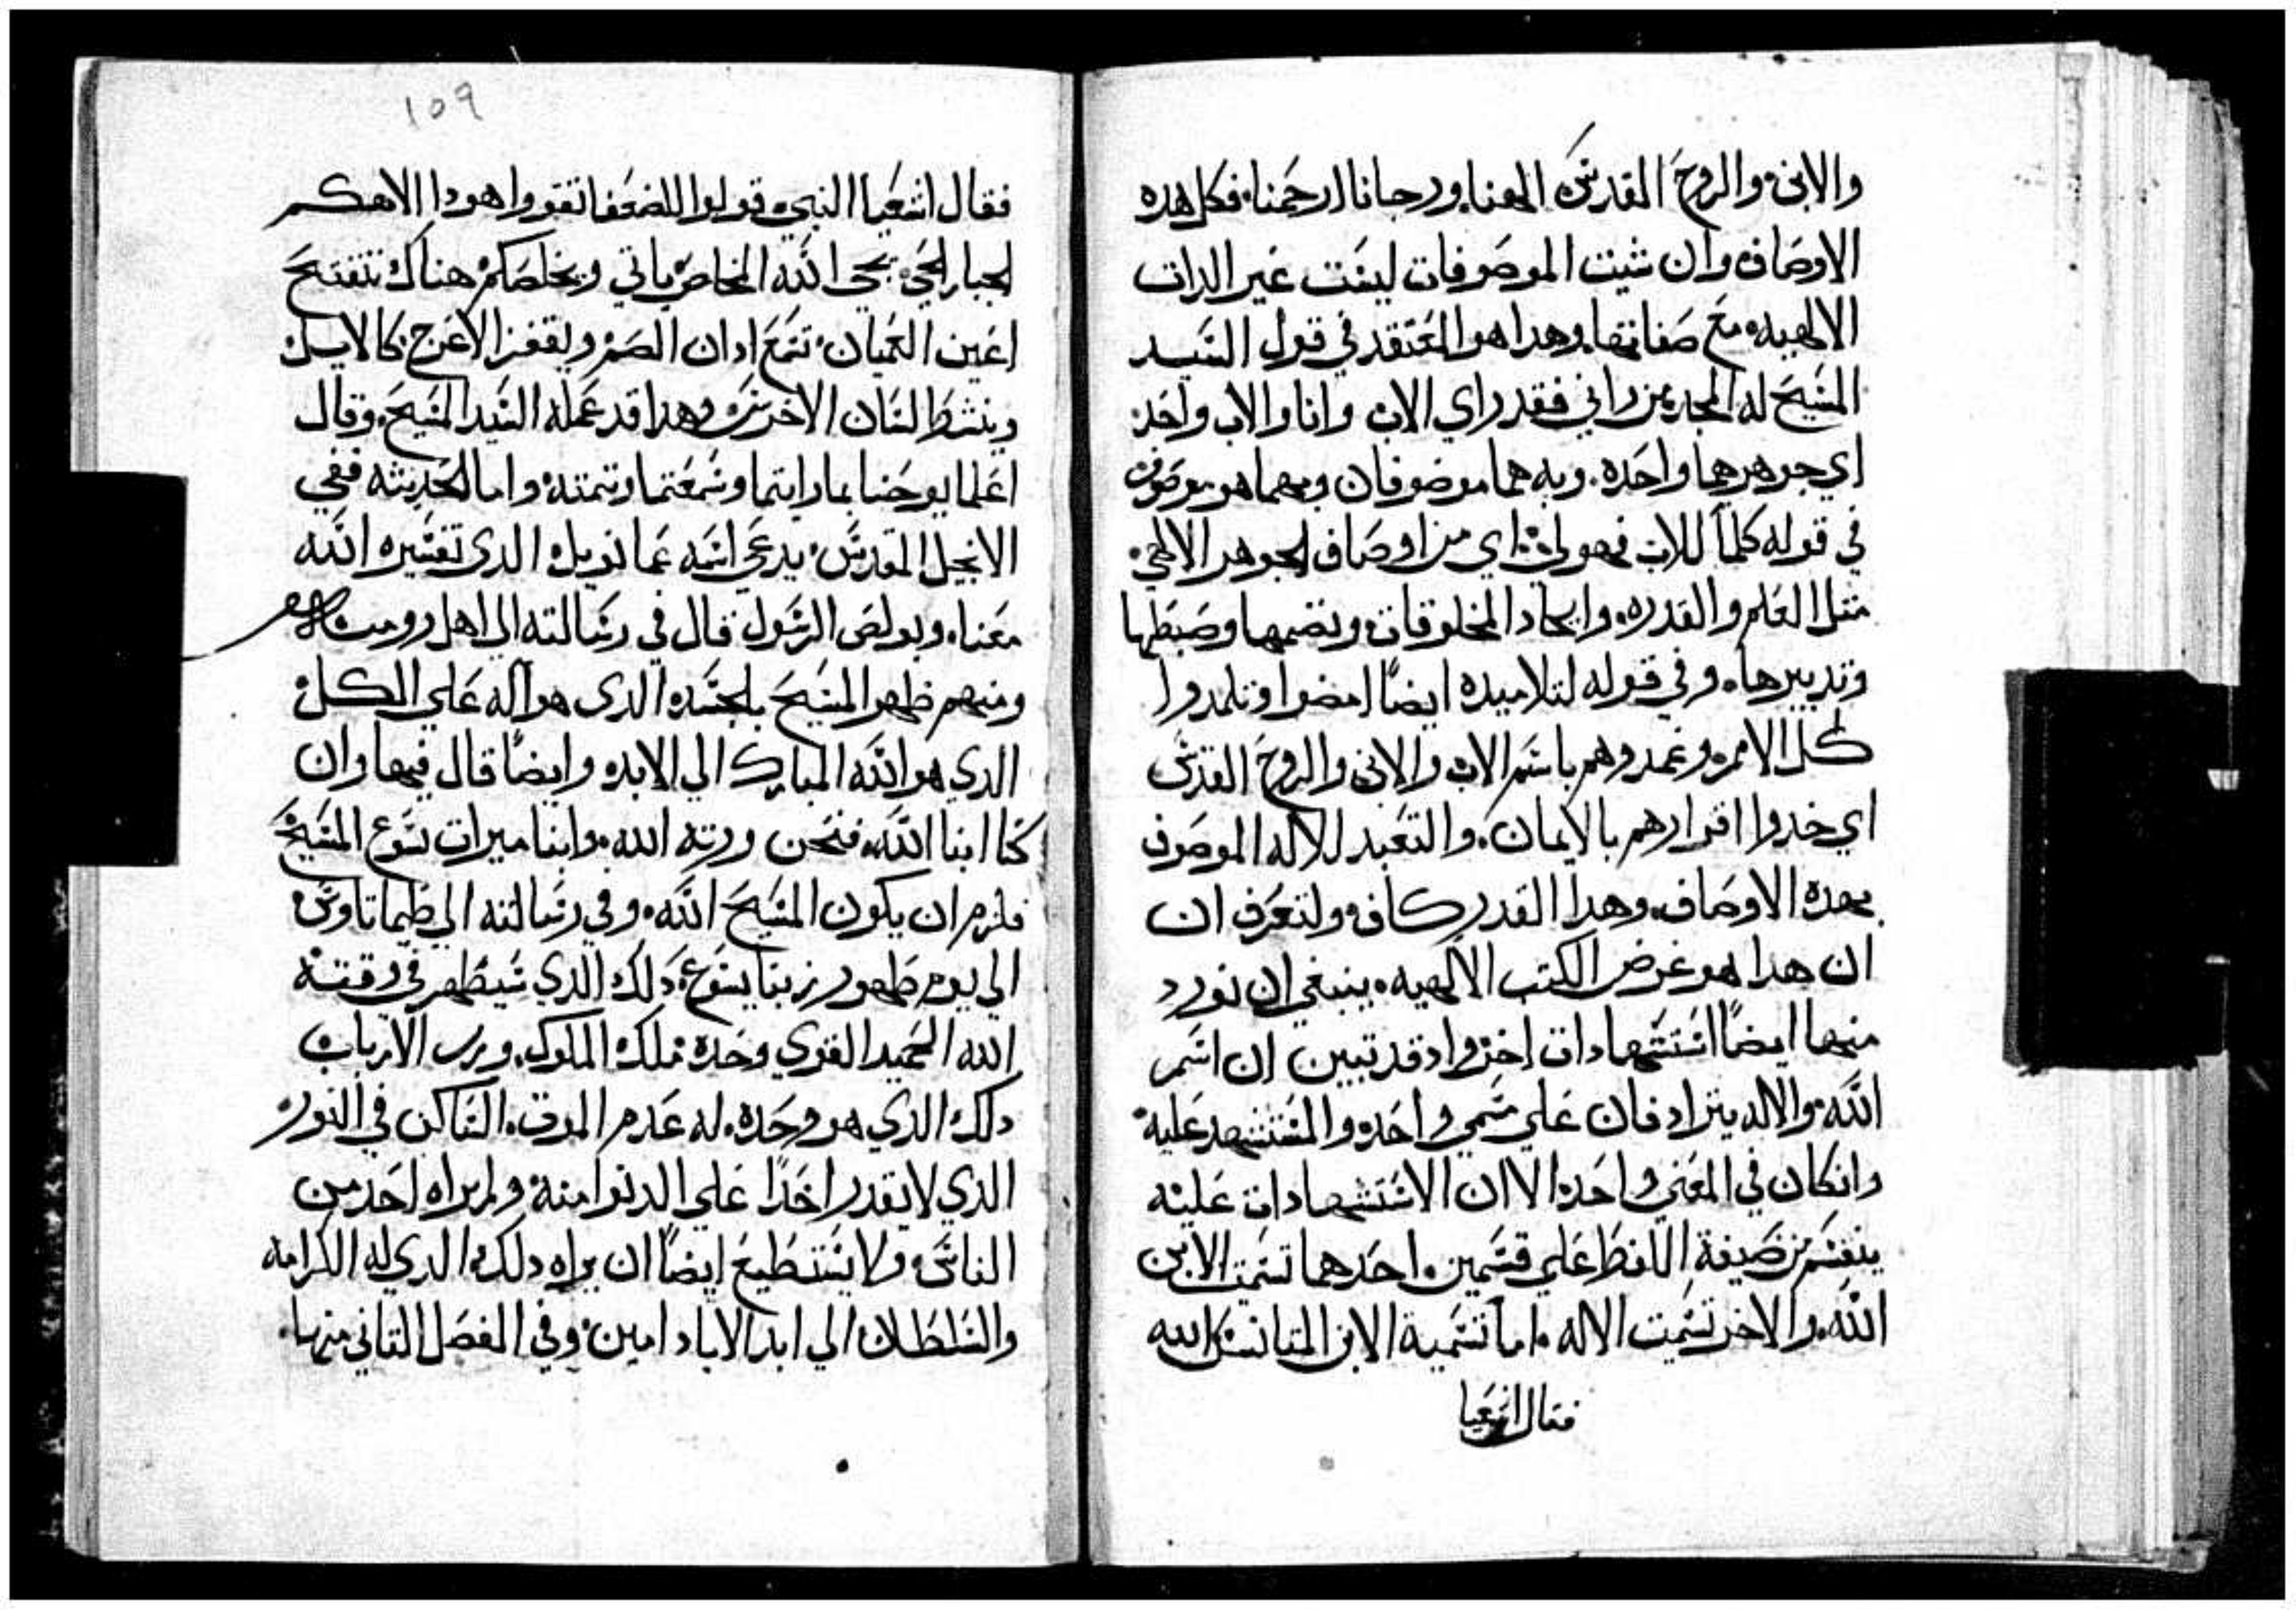 والابن والروح القدس الهنا ورجانا ارحمنا فكل هده
الاوصاف وان ثنيت الموصوفات ليست غير الدات
الالهيه مع صفاتها وهدا هو المعتقد في قول السيد
المسيح له المجد من راني فقد راي الاب وانا والاب واحد
اي جوهرهما واحد وبه هما موصوفان وبهما هو موصوف
في قوله كلما للاب فهو لي اي من اوصاف الجوهر الالهي
مثل العلم والقدره وايجاد المخلوقات ونضمها وضبطها
وتدبيرها وفي قوله لتلاميده ايضًا امضوا وتلمدوا
كل الامم وعمدوهم باسم الاب والابن والروح القدس
اي خدوا اقرارهم بالايمان والتعبد للاله الموصوف
بهده الاوصاف وهدا القدر كاف ولتعرف ان
ان هدا هو غرض الكتب الالهيه ينبغي ان نورد
منها ايضًا استشهادات اخر واد قد تبين ان اسم
الله والاله يترادفان علي مسمي واحد والمستشهد عليه
وانكان في المعني واحد الا ان الاستشهادات عليه
ينقسم من صيغة اللفظ علي قسمين احدهما تسميت الابن
الله والاخر تسميت الاله اما تسمية الابن المتانس الله
فقال اشعيا
١٥٩
فقال اشعيا النبي قولوا للضعفا تقووا هودا الاهكم
الجبار يجي يجي الله المخلص ياتي ويخلصكم هناك تتفتح
اعين العميان تسمع ادان الصم ويقفز الاعرج كالايل
وينشط لسان الاخرس وهدا قد عمله السيد المسيح وقال
اعلما يوحنا بما رايتما وسمعتما وتتمته واما الحديثه ففي
الانجيل المقدس يدعي اسمه عمانويل الدي تفسيره الله
معنا وبولص الرسول قال في رسالته الي اهل روميه
ومنهم ظهر المسيح بالجسد الدي هو اله علي الكل
الدي هو الله المبارك الي الابد وايضًا قال فيها وان
كنا ابنا الله فنحن ورته الله وابنا ميرات يسوع المسيح
فلزم ان يكون المسيح الله وفي رسالته الي طيماتاوس
الي يوم ظهور ربنا يسوع دلك الدي سيظهر في وقته
الله الحميد القوي وحده ملك الملوك ورب الارباب
دلك الدي هو وحده له عدم الموت الساكن في النور
الدي لا يقدر احدًا علي الدنوا منه ولم يراه احد من
الناس ولا يستطيع ايضًا ان يراه دلك الدي له الكرامه
والسلطان الي ابد الاباد امين وفي الفصل التاني منها